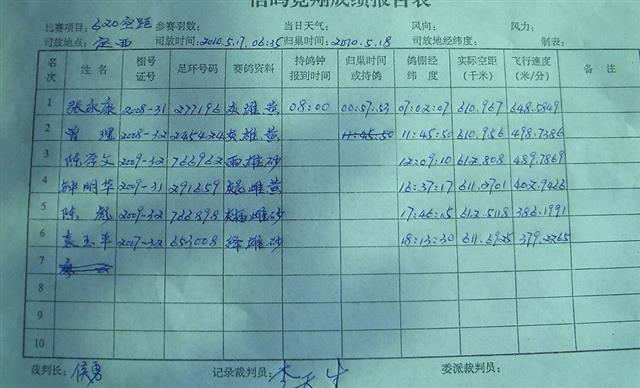 信鸽竞翔成绩报告表
比赛项目:620空距 参赛羽数: 当日天气: 风向: 风力:
司放地点:定西 司放时间:2010.5.17.06:35 归巢时间:2010.5.18 司放地经纬度: 制表:
名次 姓名 棚号证号 足环号码 赛鸽资料 持鸽钟报到时间 归巢时间或持鸽 鸽棚经纬度 实际空距(千米) 飞行速度(米/分) 备注
1 张永康 2008-31 277196 灰雄黄 08:00 00:57:53 07:02:07 610.967 648.5849
2 曾理 2008-32 245424 灰雄黄 11:45:50 11:45:50 610.956 498.7386
3 陈学文 2009-32 766962 雨雄砂 12:09:10 612.808 489.7869
4 钟明华 2009-31 291659 雌黄 16:37:17 611.2701 402.9466
5 陈彪 2009-32 766898 雌砂 17:46:15 612.5118 386.1991
6 袁玉平 2007-32 653008 绛雄砂 18:13:30 611.6925 379.2265
7
8
9
10
裁判长:侯勇 记录裁判员: 委派裁判员: